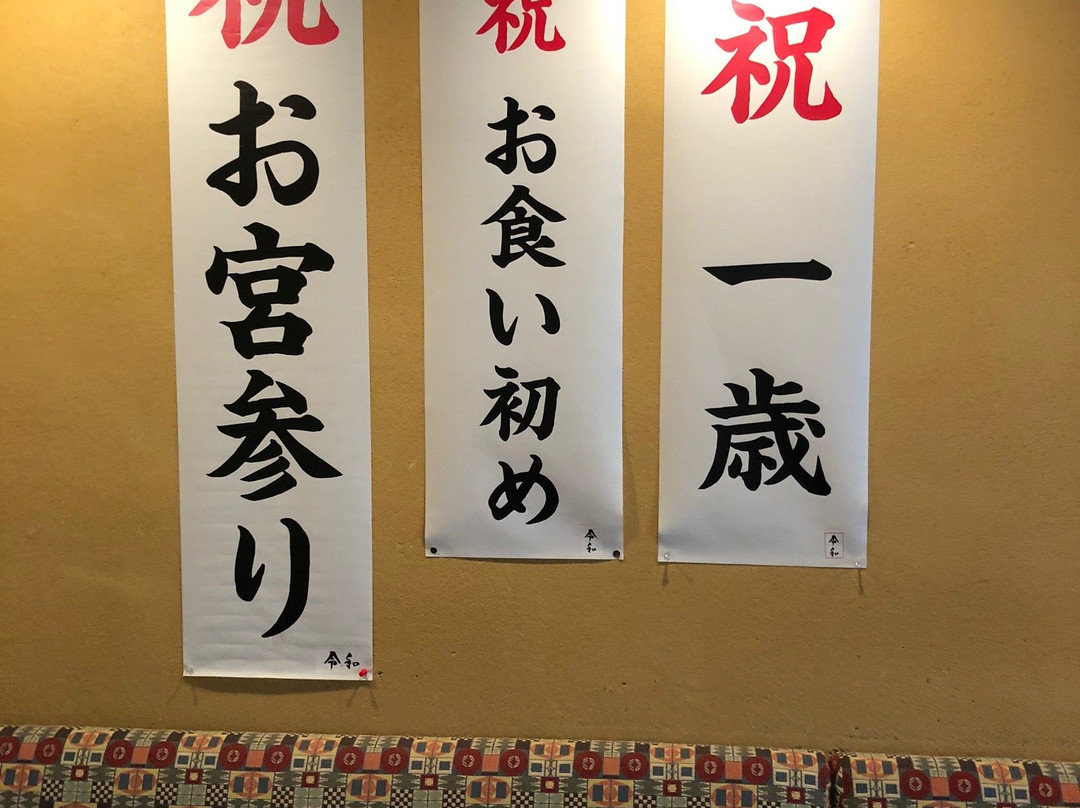 祝
お宮参り
令和
祝
お食い初め
令和
祝
一歳
令和